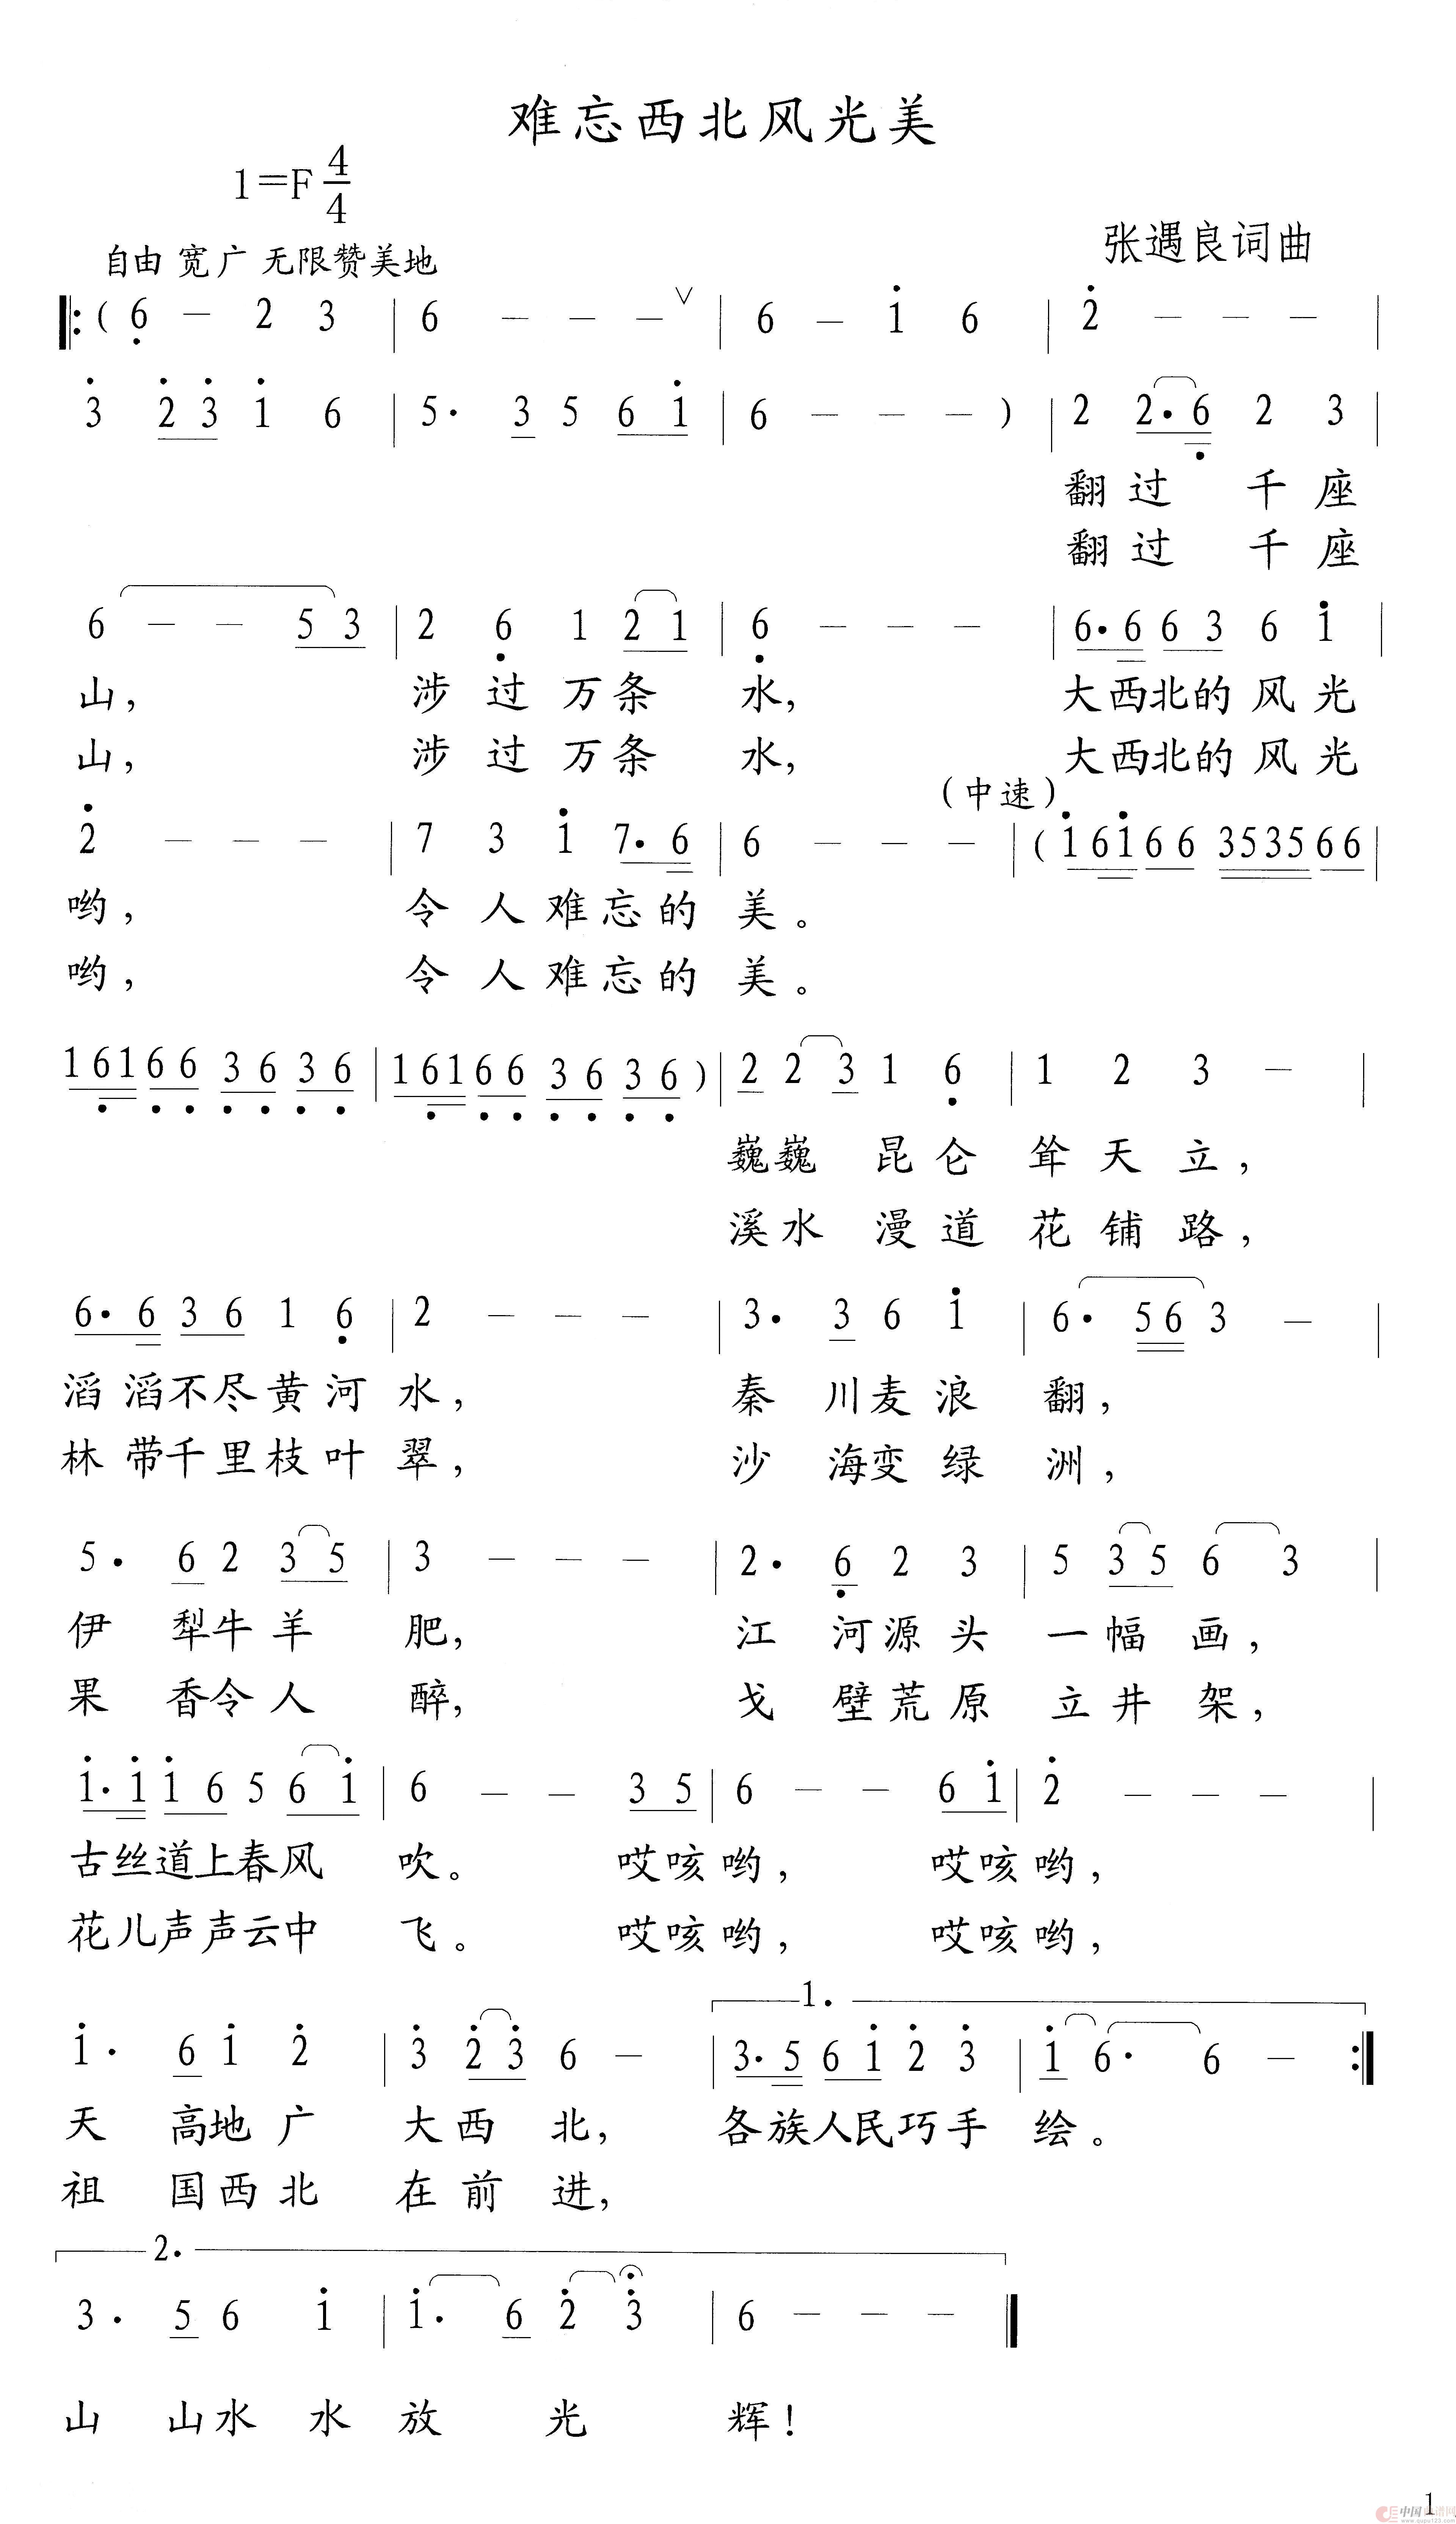 难忘西北风光美
1=F 4/4
张遇良词曲
自由 宽广 无限赞美地
‖: ( 6̣ — 2 3 | 6 — — — ∨ | 6 — 1̇ 6 | 2̇ — — — |
3̇ 2̇ 3̇ 1̇ 6 | 5· 3 5 6 1̇ | 6 — — — ) | 2 2· 6̣ 2 3 |
翻过 千座
翻过 千座
6 — — 5 3 | 2 6̣ 1 2 1 | 6̣ — — — | 6· 6 6 3 6 1̇ |
山, 涉过万条 水, 大西北的风光
山, 涉过万条 水, 大西北的风光
(中速)
2̇ — — — | 7 3 1̇ 7· 6 | 6 — — — | ( 1̇ 6 1̇ 6 6 3 5 3 5 6 6 |
哟, 令人难忘的 美。
哟, 令人难忘的 美。
1 6̣ 1 6̣ 6̣ 3 6̣ 3 6̣ | 1 6̣ 1 6̣ 6̣ 3 6̣ 3 6̣ ) | 2 2 3 1 6̣ | 1 2 3 — |
巍巍 昆仑 耸天立,
溪水 漫道 花铺路,
6· 6 3 6 1 6̣ | 2 — — — | 3· 3 6 1̇ | 6· 5 6 3 — |
滔滔不尽黄河 水, 秦 川麦浪 翻,
林带千里枝叶 翠, 沙 海变绿 洲,
5· 6 2 3 5 | 3 — — — | 2· 6̣ 2 3 | 5 3 5 6 3 |
伊 犁牛羊 肥, 江 河源头 一幅画,
果 香令人 醉, 戈 壁荒原 立井架,
1̇· 1̇ 1̇ 6 5 6 1̇ | 6 — — 3 5 | 6 — — 6 1̇ | 2̇ — — — |
古丝道上春风 吹。 哎咳哟, 哎咳哟,
花儿声声云中 飞。 哎咳哟, 哎咳哟,
1.
1̇· 6 1̇ 2̇ | 3̇ 2̇ 3̇ 6 — | 3· 5 6 1̇ 2̇ 3̇ | 1̇ 6· 6 — :‖
天 高地广 大西北, 各族人民巧手 绘。
祖 国西北 在前进,
2.
3· 5 6 1̇ | 1̇· 6 2̇ 3̇ | 6 — — — ‖
山 山水水放 光 辉!
1